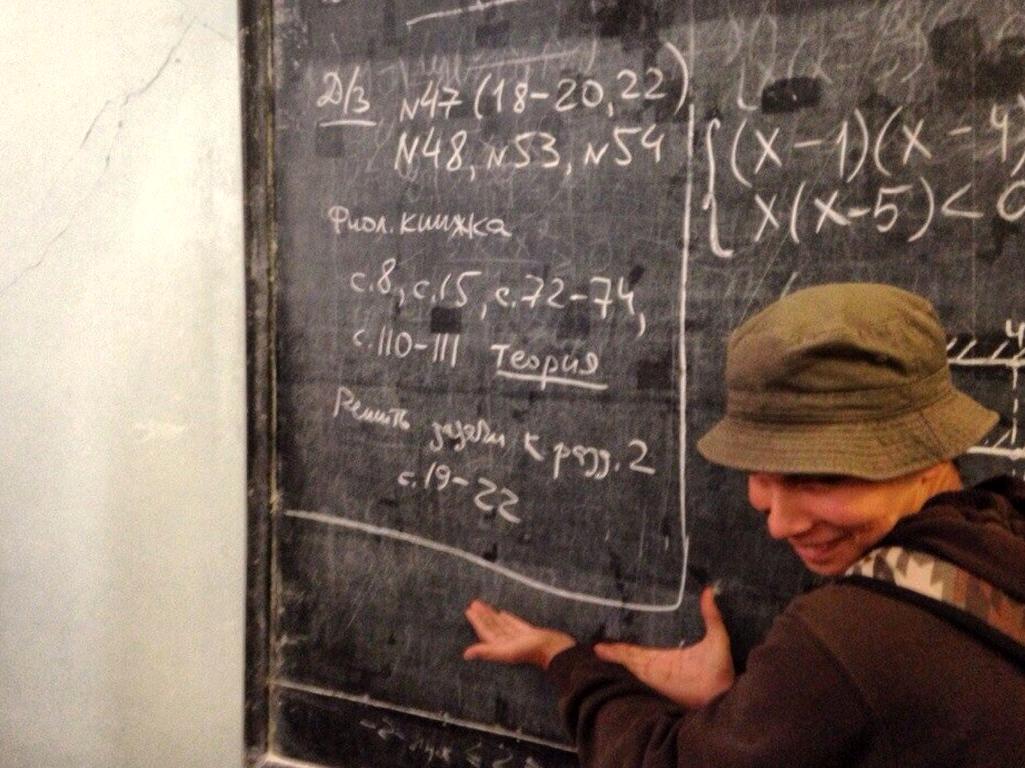 Д/з №47 (18-20, 22)
№48, №53, №54
Фиол. книжка
с.8, с.15, с.72-74,
с.110-111 Теория
Решить задачи к разд. 2
с.19-22
(x-1)(x-4)
x(x-5)<0
4